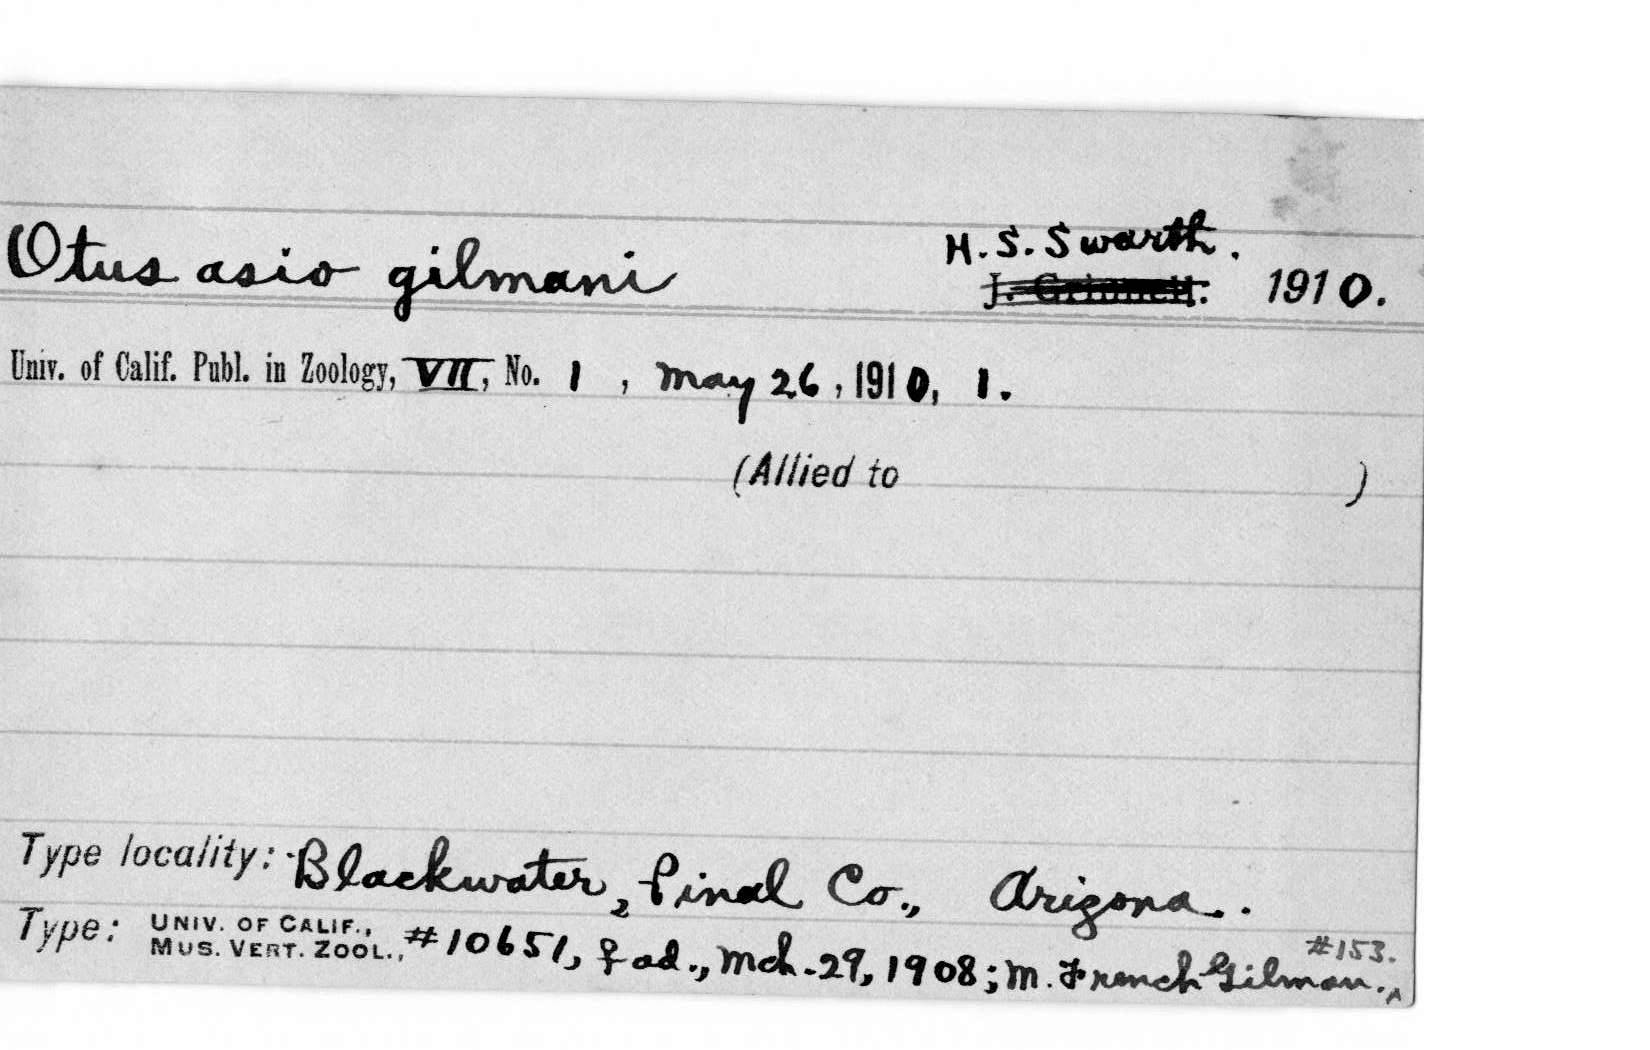 H. S. Swarth.
Otus asio gilmani J. Grinnell. 1910.
Univ. of Calif. Publ. in Zoology, VII, No. 1, May 26, 1910, 1.
(Allied to )
Type locality: Blackwater, Pinal Co., Arizona.
Type: UNIV. OF CALIF., MUS. VERT. ZOOL., #10651, ♀ ad., Mch. 29, 1908; M. French Gilman.
#153.